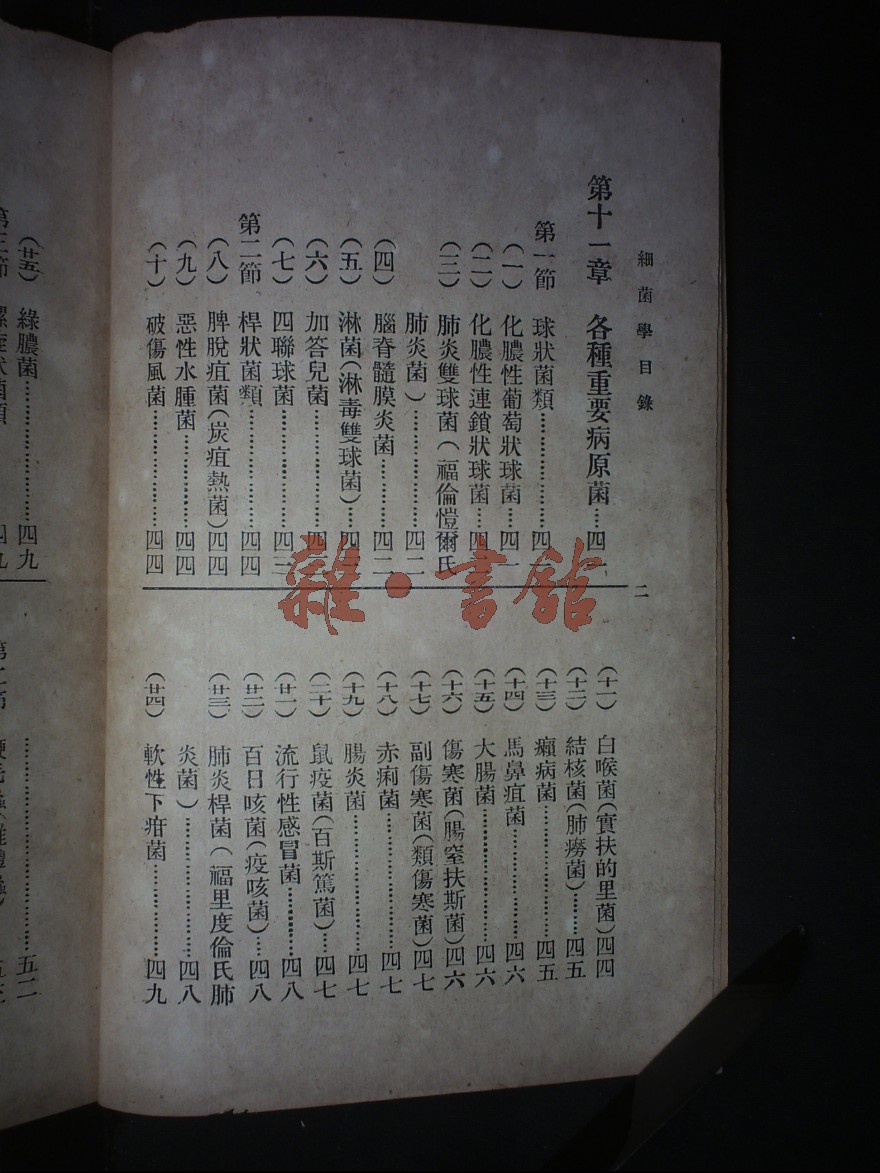 細菌學目錄
二
第十一章　各種重要病原菌…四一
第一節　球狀菌類………………四一
（一）化膿性葡萄狀球菌…四一
（二）化膿性連鎖狀球菌…四
（三）肺炎雙球菌（福倫愷爾氏
肺炎菌）………………四二
（四）腦脊髓膜炎菌…………四二
（五）淋菌（淋毒雙球菌）…四
（六）加答兒菌………………四
（七）四聯球菌………………四三
第二節　桿狀菌類………………四四
（八）脾脫疽菌（炭疽熱菌）四四
（九）惡性水腫菌……………四四
（十）破傷風菌………………四四
（十一）白喉菌（實扶的里菌）四四
（十二）結核菌（肺癆菌）……四五
（十三）癩病菌…………………四五
（十四）馬鼻疽菌………………四六
（十五）大腸菌…………………四六
（十六）傷寒菌（腸窒扶斯菌）四六
（十七）副傷寒菌（類傷寒菌）四七
（十八）赤痢菌…………………四七
（十九）腸炎菌…………………四七
（二十）鼠疫菌（百斯篤菌）…四七
（廿一）流行性感冒菌…………四八
（廿二）百日咳菌（疫咳菌）…四八
（廿三）肺炎桿菌（福里度倫氏肺
炎菌）…………………四八
（廿四）軟性下疳菌……………四九
（廿五）綠膿菌…………………四九
…………………五二
雜·書館